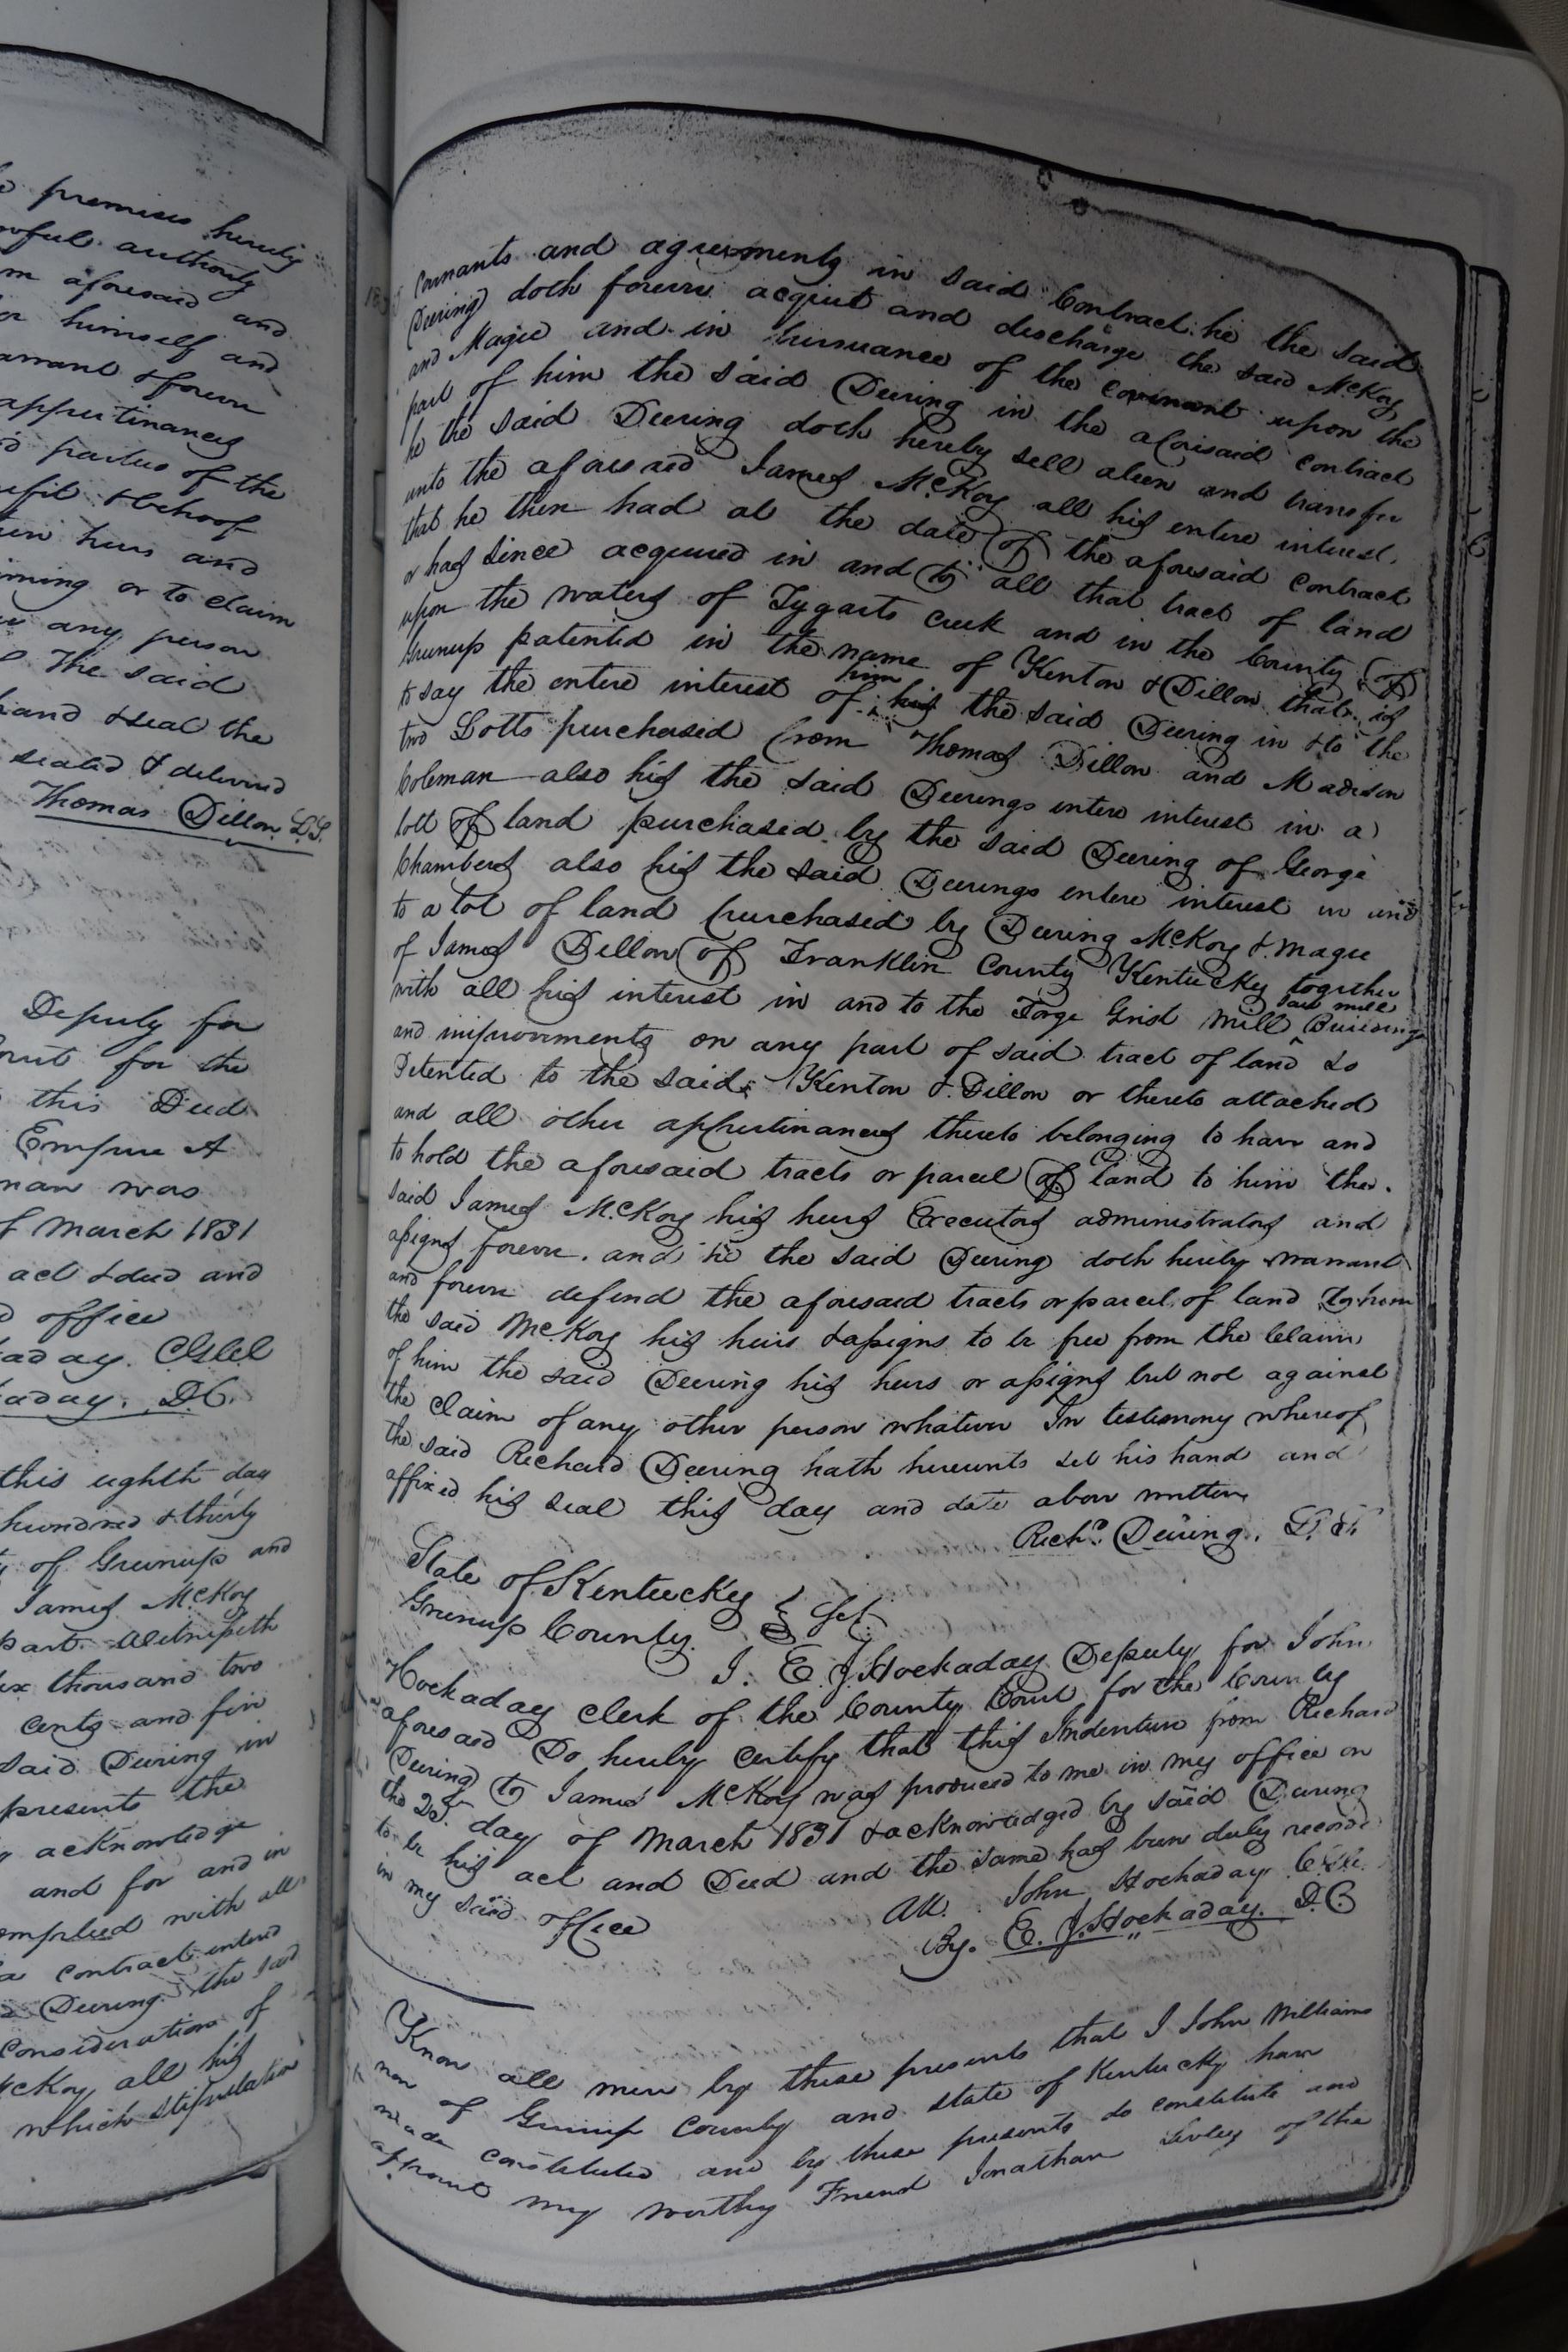 premises hereby
authority
aforesaid and
himself and
forever
appurtinances
parties of the
& behoof
heirs and
or to claim
any person
The said
hand & seal the
sealed & delivered
Thomas Dillon L.S.
Deputy for
for the
this Deed
Empire A
was
of March 1831
act & deed and
office
Clk
D.C.
this eighth day
hundred & thirty
of Greenup and
James McKoy
part. Witnesseth
thousand two
cents and five
said Deering in
presents the
acknowledge
and for and in
with all
a contract entered
Deering the said
consideration of
McKoy all his
which stipulation
covnants and agreements in said Contract he the said
Deering doth forever acquit and discharge the said McKoy
and Magee and in pursuance of the covenant upon the
part of him the said Deering in the aforisaid contract
he the said Deering doth hereby sell alien and transfer
unto the aforesaid James McKoy all his entire interest
that he then had at the date of the aforesaid contract
or has since acquired in and to all that tract of land
upon the waters of Tygarts creek and in the County of
Greenup patented in the name of Kenton & Dillon that is
to say the entire interest of him the said Deering in & to the
two Lotts purchased from Thomas Dillon and Madison
Coleman also his the said Deerings entire interest in a
lott of land purchased by the said Deering of George
Chambers also his the said Deerings entire interest in and
to a lot of land purchased by Deering McKoy & Magee
of James Dillon of Franklin County Kentucky together
with all his interest in and to the Forge Grist Mill saw mill Buildings
and improvements on any part of said tract of land so
Petented to the said Kenton & Dillon or thereto attached
and all other appurtinances thereto belonging to have and
to hold the aforesaid tracts or parcel of land to him the
said James McKoy his heirs Executors administrators and
assigns forever. and he the said Deering doth hereby warrant
and forever defend the aforesaid tracts or parcel of land to him
the said McKoy his heirs & assigns to be free from the Claim
of him the said Deering his heirs or assigns but not against
the claim of any other person whatever In testimony whereof
the said Richard Deering hath hereunto set his hand and
affixed his seal this day and date above written
Richd. Deering. L.S.
State of Kentucky
Greenup County. } Sct.
I. E. J. Hockaday Deputy for John
Hockaday clerk of the County Court for the County
aforesaid Do hereby certify that this Indenture from Richard
Deering to James McKoy was produced to me in my office on
the 25th day of March 1831 & acknowledged by said Deering
to be his act and Deed and the same has been duly recorded
in my said office
Att. John Hockaday Clk.
By. E. J. Hockaday. D.C.
Know all men by these presents that I John Williams
now of Greenup County and state of Kentucky have
made constituted and by these presents do constitute and
appoint my worthy Friend Jonathan of the